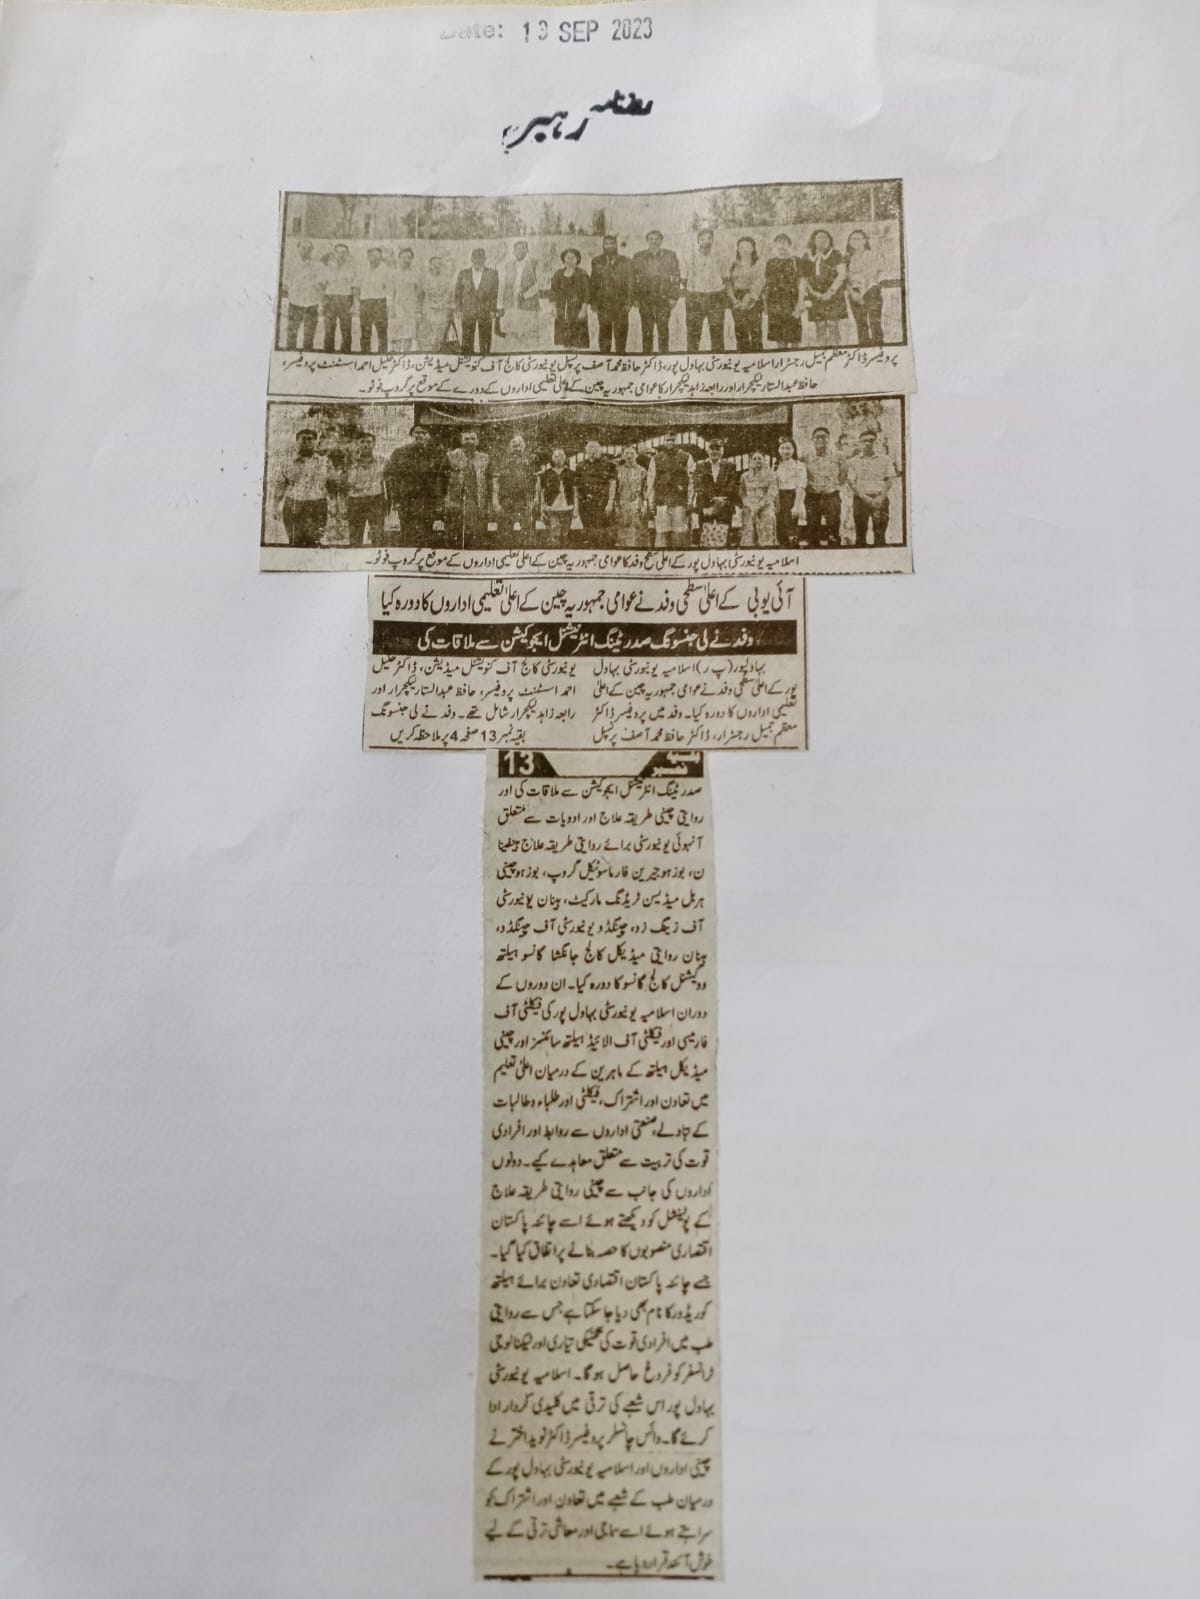 Date: 13 SEP 2023
روزنامہ رہبر
پروفیسر ڈاکٹر معظم جمیل رجسٹرار اسلامیہ یونیورسٹی بہاول پور، ڈاکٹر حافظ محمد آصف پرنسپل یونیورسٹی کالج آف کنونیشنل میڈیشن، ڈاکٹر خلیل احمد اسسٹنٹ پروفیسر،
حافظ عبدالستار لیکچرار اور رابعہ زاہد لیکچرار کا عوامی جمہوریہ چین کے اعلیٰ تعلیمی اداروں کے دورے کے موقع پر گروپ فوٹو۔
اسلامیہ یونیورسٹی بہاول پور کے اعلیٰ سطح وفد کا عوامی جمہوریہ چین کے اعلیٰ تعلیمی اداروں کے موقع پر گروپ فوٹو۔
آئی یو بی کے اعلیٰ سطحی وفد نے عوامی جمہوریہ چین کے اعلیٰ تعلیمی اداروں کا دورہ کیا
وفد نے لی جنسونگ صدر ٹینگ انٹرنیشنل ایجوکیشن سے ملاقات کی
بہاولپور (پ ر) اسلامیہ یونیورسٹی بہاول
پور کے اعلیٰ سطحی وفد نے عوامی جمہوریہ چین کے اعلیٰ
تعلیمی اداروں کا دورہ کیا۔ وفد میں پروفیسر ڈاکٹر
معظم جمیل رجسٹرار، ڈاکٹر حافظ محمد آصف پرنسپل
یونیورسٹی کالج آف کنونیشنل میڈیشن، ڈاکٹر خلیل
احمد اسسٹنٹ پروفیسر، حافظ عبدالستار لیکچرار اور
رابعہ زاہد لیکچرار شامل تھے۔ وفد نے لی جنسونگ
بقیہ نمبر 13 صفحہ 4 پر ملاحظہ کریں
بقیہ نمبر 13
صدر ٹینگ انٹرنیشنل ایجوکیشن سے ملاقات کی اور
روایتی چینی طریقہ علاج اور ادویات سے متعلق
آنہوئی یونیورسٹی برائے روایتی طریقہ علاج ہیفینا
ن، بوزہو جیرین فارماسوٹیکل گروپ، بوزہو چینی
ہربل میڈیسن ٹریڈنگ مارکیٹ، ہینان یونیورسٹی
آف زینگ زو، چینگڈو یونیورسٹی آف چینگڈو،
ہینان روایتی میڈیکل کالج جانگشا گانسو ہیلتھ
ووکیشنل کالج گانسو کا دورہ کیا۔ ان دوروں کے
دوران اسلامیہ یونیورسٹی بہاول پور کی فیکلٹی آف
فارمیسی اور فیکلٹی آف الائیڈ ہیلتھ سائنسز اور چینی
میڈیکل ہیلتھ کے ماہرین کے درمیان اعلیٰ تعلیم
میں تعاون اور اشتراک، فیکلٹی اور طلباء و طالبات
کے تبادلے، صنعتی اداروں سے روابط اور افرادی
قوت کی تربیت سے متعلق معاہدے کیے۔ دونوں
اداروں کی جانب سے چینی روایتی طریقہ علاج
کے پوٹینشل کو دیکھتے ہوئے اسے چائنہ پاکستان
اقتصادی منصوبوں کا حصہ بنانے پر اتفاق کیا گیا۔
جسے چائنہ پاکستان اقتصادی تعاون برائے ہیلتھ
کوریڈور کا نام بھی دیا جا سکتا ہے جس سے روایتی
طب میں افرادی قوت کی تکنیکی تیاری اور ٹیکنالوجی
ٹرانسفر کو فروغ حاصل ہو گا۔ اسلامیہ یونیورسٹی
بہاول پور اس شعبے کی ترقی میں کلیدی کردار ادا
کرے گا۔ وائس چانسلر پروفیسر ڈاکٹر نوید اختر نے
چینی اداروں اور اسلامیہ یونیورسٹی بہاول پور کے
درمیان طب کے شعبے میں تعاون اور اشتراک کو
سراہتے ہوئے اسے سماجی اور معاشی ترقی کے لیے
خوش آئند قرار دیا ہے۔